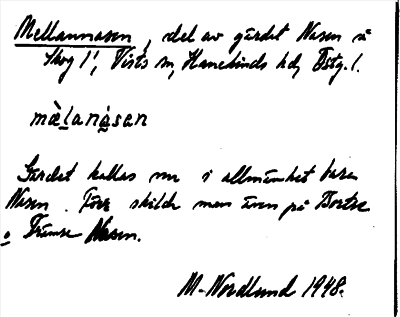 Mellannasen, del av gärdet Nasen å
Skog 1¹, Vists sn, Hanekinds hd, Östg. l.
mèlanàsan
Gärdet kallas nu i allmänhet bara
Nasen. Förr skilde man även på Bortre
o Främre Nasen.
M. Nordlund 1948.